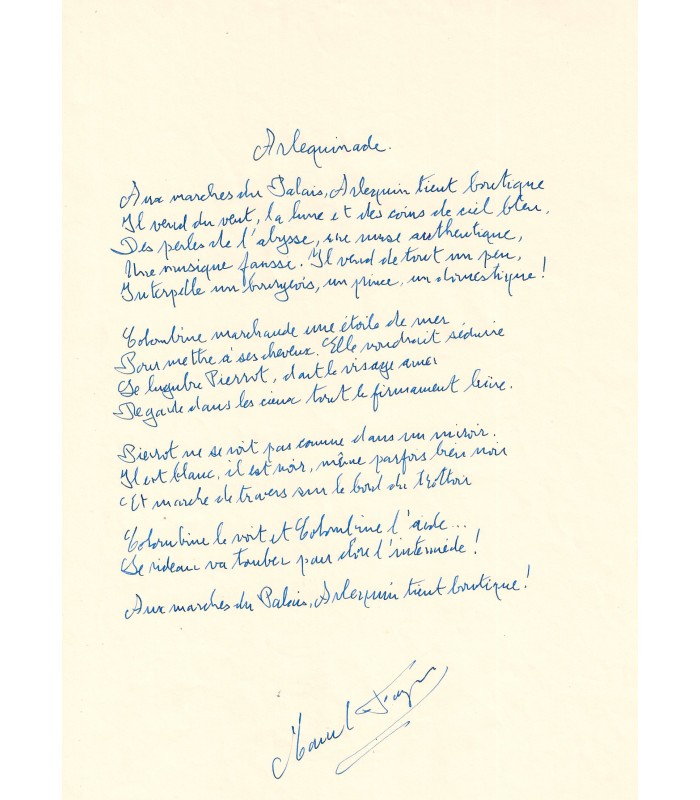 Arlequinade.
Aux marches du Palais, Arlequin tient boutique
Il vend du vent, la lune et des coins de ciel bleu,
Des perles de l'abysse, une muse authentique,
Une musique fausse. Il vend de tout un peu,
Interpelle un bourgeois, un prince, un domestique !
Colombine marchande une étoile de mer
Pour mettre à ses cheveux. Elle voudrait séduire
Le lugubre Pierrot, dont le visage amer
Regarde dans les cieux tout le firmament luire.
Pierrot ne se voit pas comme dans un miroir.
Il est blanc, il est noir, même parfois bien noir
Et marche de travers sur le bord du trottoir
Colombine le voit et Colombine l'aide...
Le rideau va tomber pour clore l'intermède !
Aux marches du Palais, Arlequin tient boutique !
Marcel